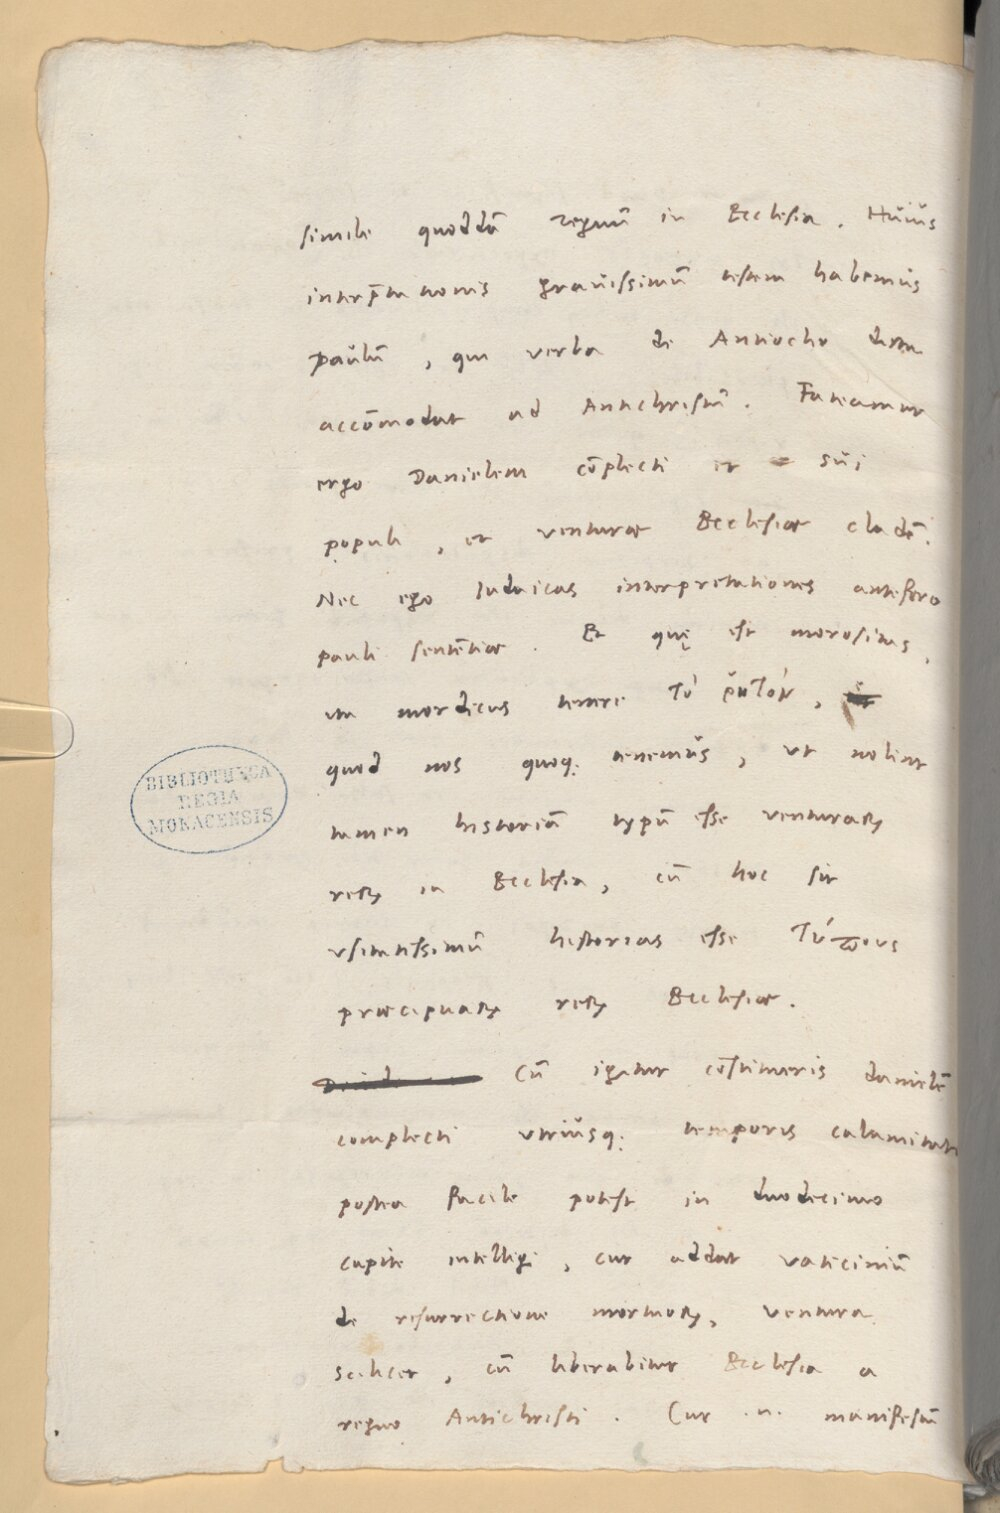 simile quoddā regnū in Ecclesia. Huius
interp̄tationis grauissimū testem habemus
Paulū, qui verba de Antiocho dicta
accōmodat ad Antichristū. Fateamur
ergo Danielem cōplecti et sui
populi, et venturæ Ecclesiæ cladē.
Nec ego Iudaicas interpretationes antefero
pauli sentētiæ. Et quę est morositas,
ita mordicus tenere τὸ ῥητὸν,
quod nos quoq; tenemus, ut nolint
tamen historiā typū esse venturaꝝ
reꝝ in Ecclesia, cū hoc sit
vsitatissimū historias esse τύπους
præcipuaꝝ reꝝ Ecclesiæ.
Cū igitur cōstitueris danielē
complecti vtriusq; temporis calamitatē
postea facile potest in duodecimo
capite intelligi, cur addat vaticiniū
de resurrectione mortuoꝝ, ventura
scilicet, cū liberabitur Ecclesia a
regno Antichristi. Cur .n. manifestū
BIBLIOTHECA
REGIA
MONACENSIS